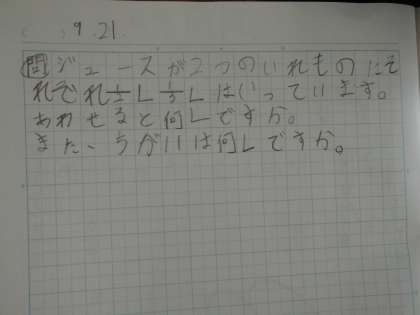 9.21.
問 ジュースが2つのいれものにそ
れぞれ1/2L 1/3Lはいっています。
あわせると何Lですか。
また、ちがいは何Lですか。